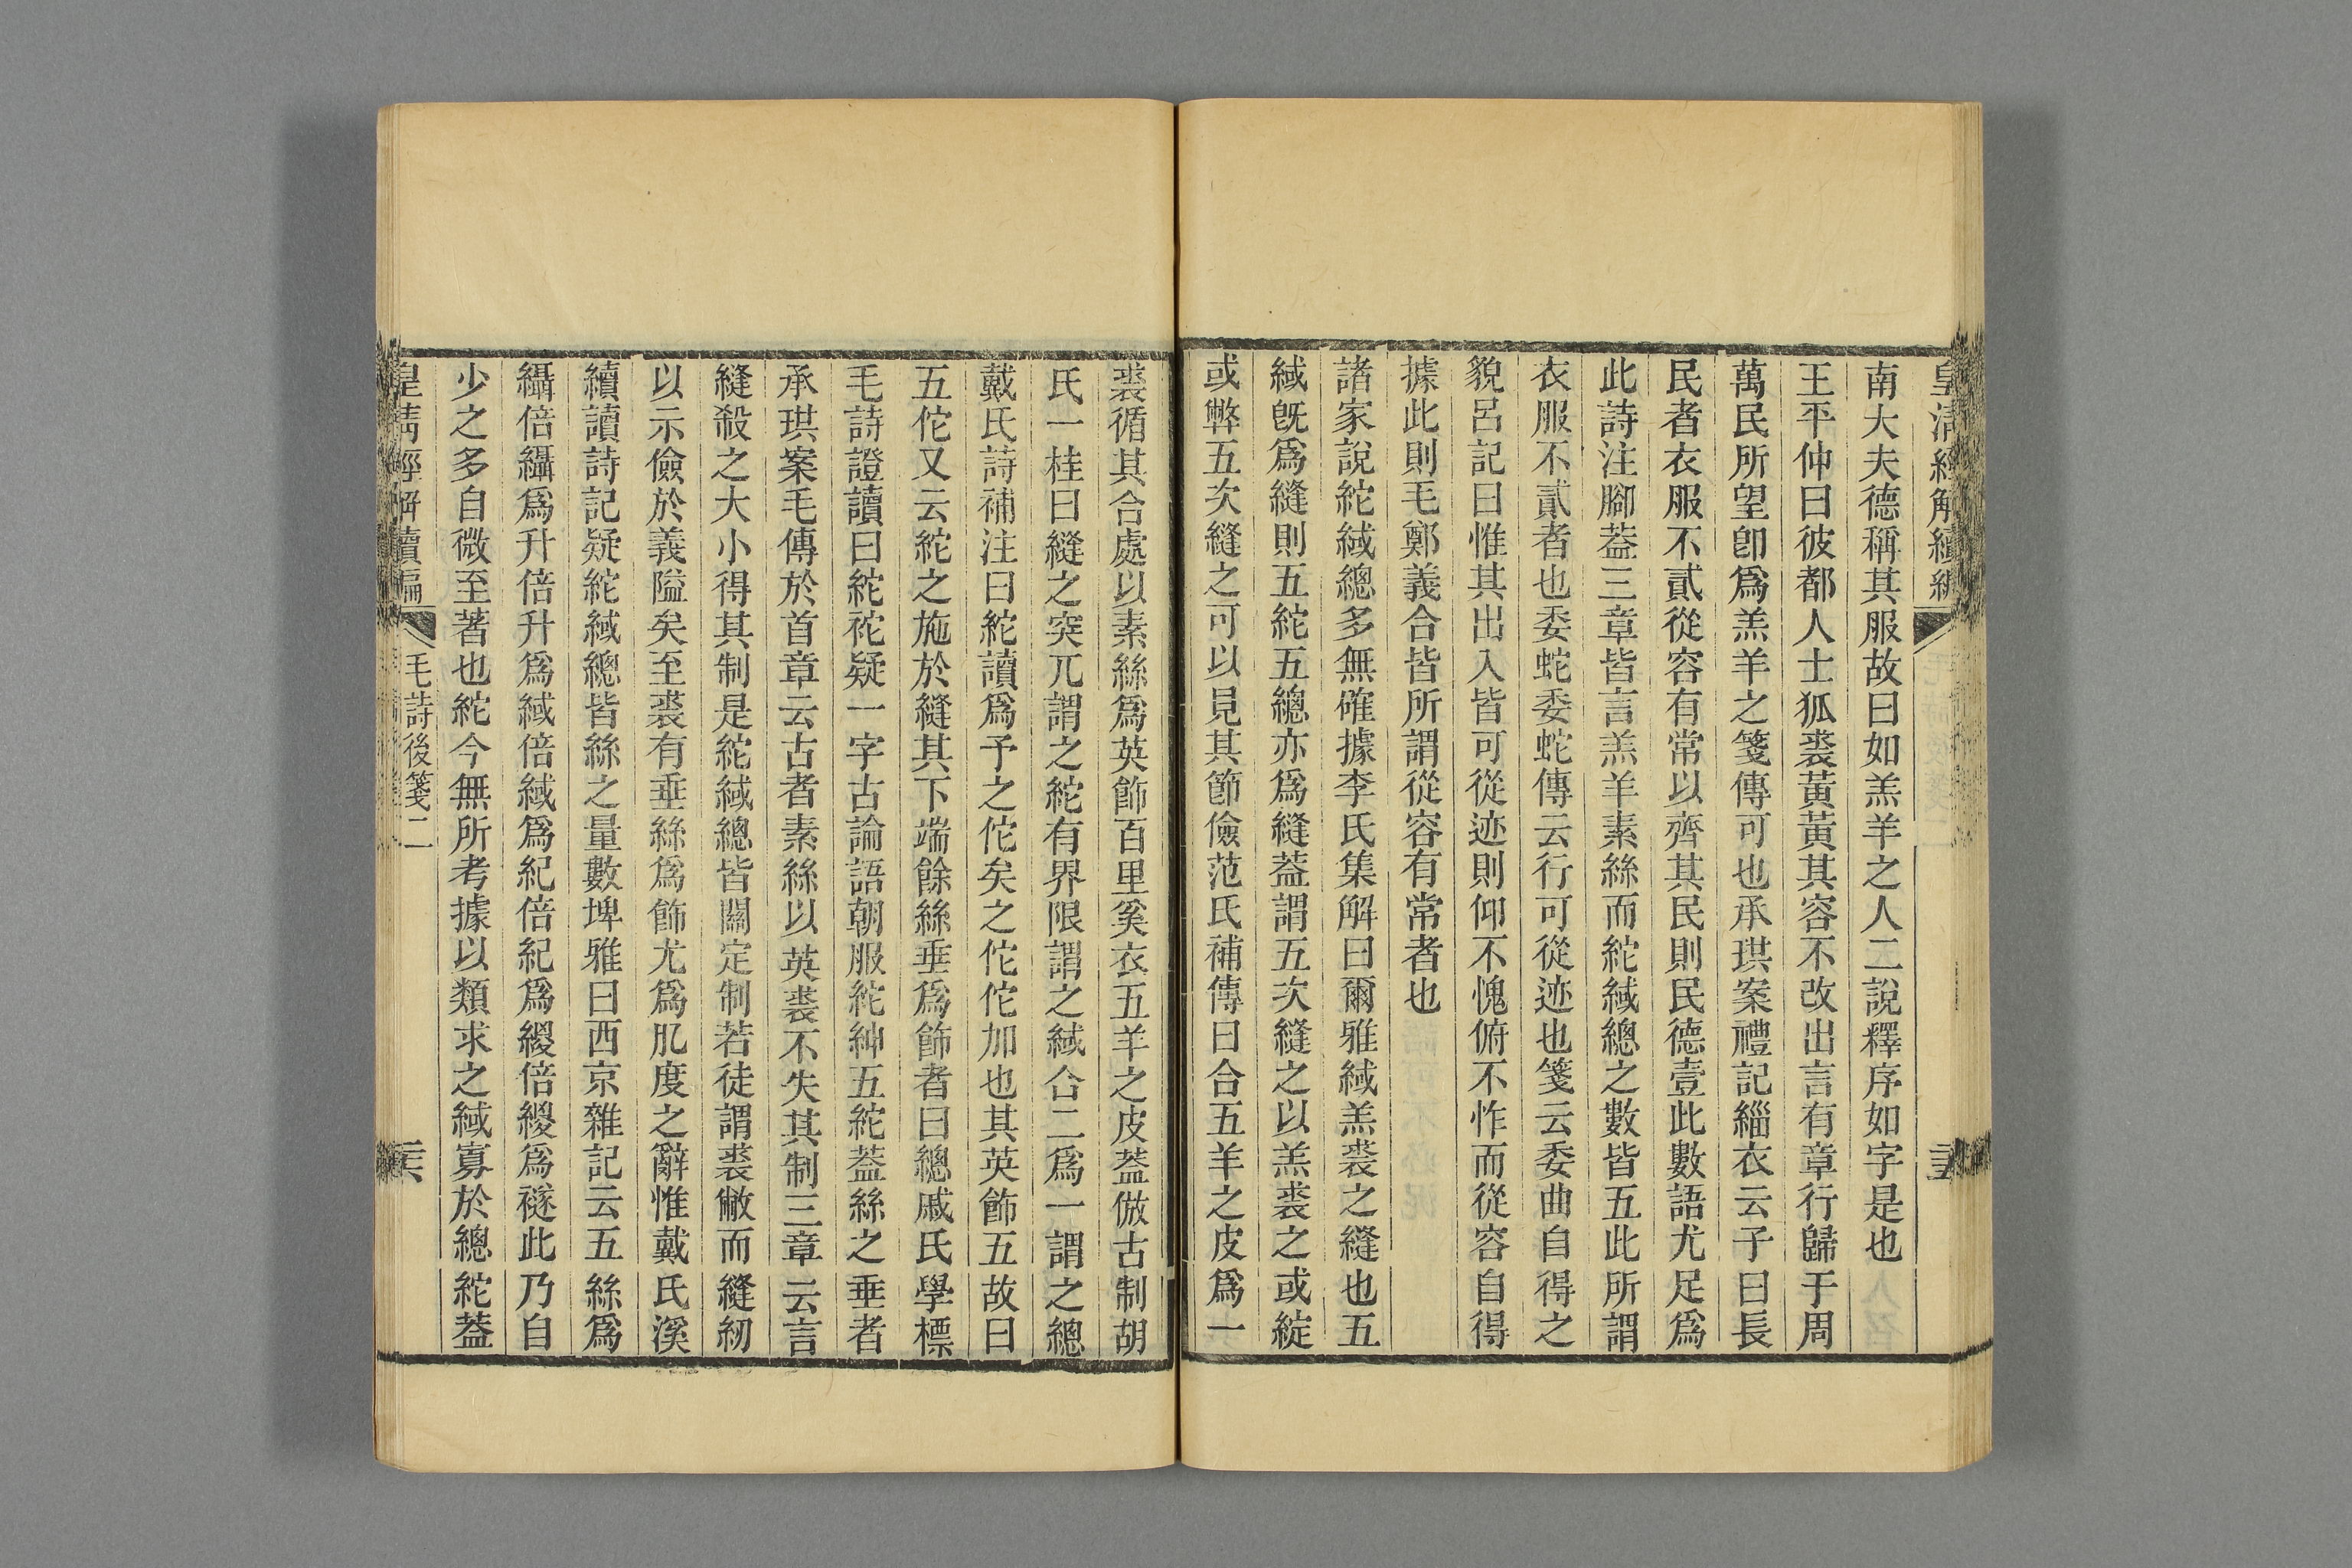 皇清經解續編
南大夫德稱其服故曰如羔羊之人二說釋序如字是也
王平仲曰彼都人士狐裘黃黃其容不改出言有章行歸于周
萬民所望卽爲羔羊之箋傳可也承珙案禮記緇衣云子曰長
民者衣服不貳從容有常以齊其民則民德壹此數語尤足爲
此詩注腳蓋三章皆言羔羊素絲而紽緎總之數皆五此所謂
衣服不貳者也委蛇委蛇傳云行可從迹也箋云委曲自得之
貌呂記曰惟其出入皆可從迹則仰不愧俯不怍而從容自得
據此則毛鄭義合皆所謂從容有常者也
諸家說紽緎總多無確據李氏集解曰爾雅緎羔裘之縫也五
緎旣爲縫則五紽五總亦爲縫蓋謂五次縫之以羔裘之或綻
或弊五次縫之可以見其節儉范氏補傳曰合五羊之皮爲一
裘循其合處以素絲爲英飾百里奚衣五羊之皮蓋倣古制胡
氏一桂曰縫之突兀謂之紽有界限謂之緎合二爲一謂之總
戴氏詩補注曰紽讀爲予之佗矣之佗佗加也其英飾五故曰
五佗又云紽之施於縫其下端餘絲垂爲飾者曰總戚氏學標
毛詩證讀曰紽袉疑一字古論語朝服紽紳五紽蓋絲之垂者
承珙案毛傳於首章云古者素絲以英裘不失其制三章云言
縫殺之大小得其制是紽緎總皆關定制若徒謂裘敝而縫紉
以示儉於義隘矣至裘有垂絲爲飾尤爲肊度之辭惟戴氏溪
續讀詩記疑紽緎總皆絲之量數埤雅曰西京雜記云五絲爲
繘倍繘爲升倍升爲緎倍緎爲紀倍紀爲緵倍緵爲襚此乃自
少之多自微至著也紽今無所考據以類求之緎寡於總紽蓋
皇清經解續編
毛詩後箋二